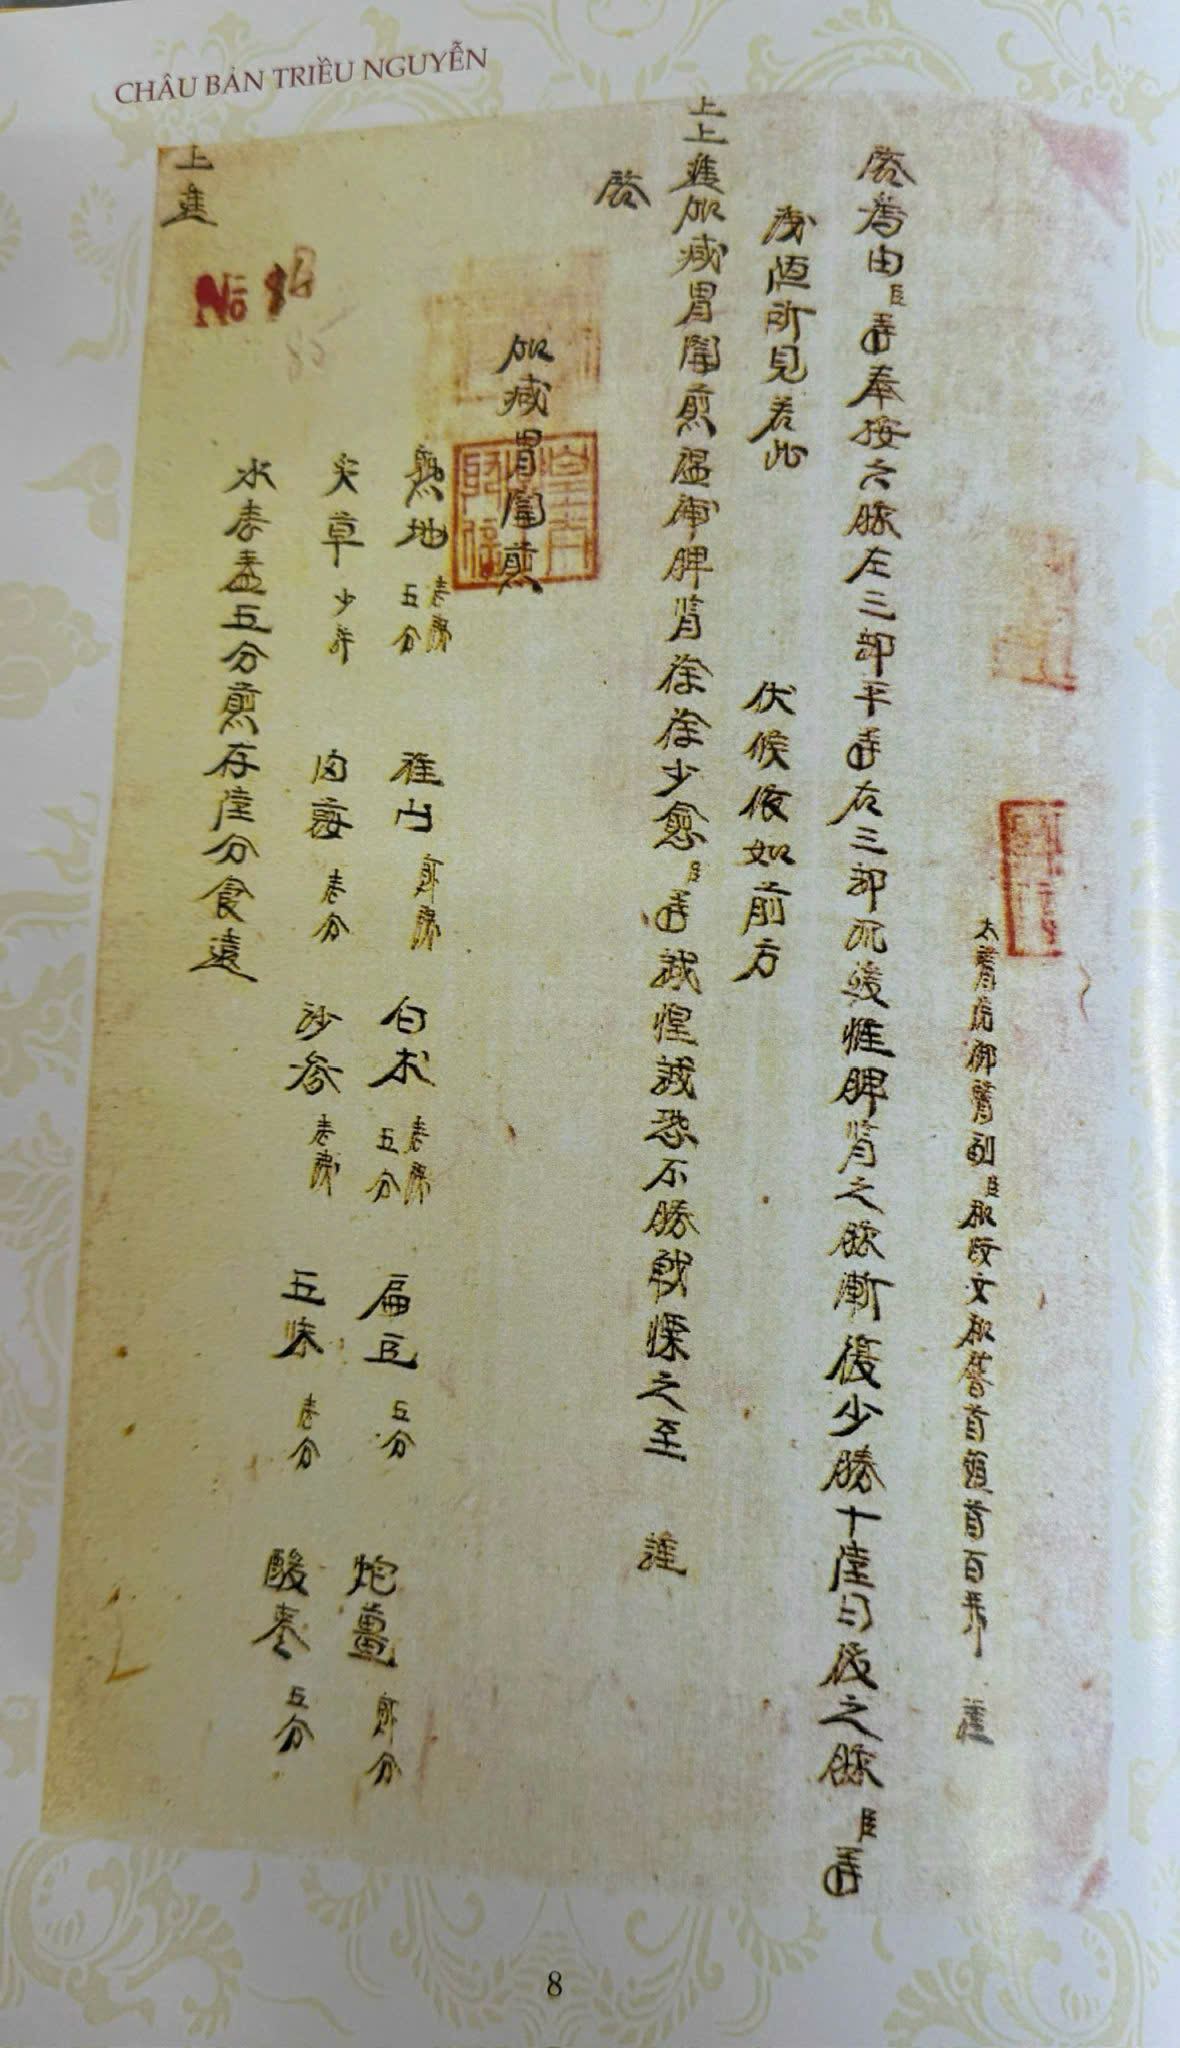 CHÂU BẢN TRIỀU NGUYỄN
太醫院御醫副臣段文稽首頓首百拜 謹
啓為由臣等奉按六脉左三部平等右三部沉緩惟脾腎之脉漸復少勝十陸日夜之脉臣等
淺陋所見若此 伏候依如前方
上上進加减胃關煎温補脾腎徐徐少愈臣等誠惶誠恐不勝戰慄之至 謹
啓
加减胃關煎
熟地 五分 淮山 白朮 五分 扁豆 五分 炮薑 分
炙草 少許 肉 壱分 沙參 五味 壱分 酸棗 五分
水壱盞五分煎存陸分食遠
上進
No
8